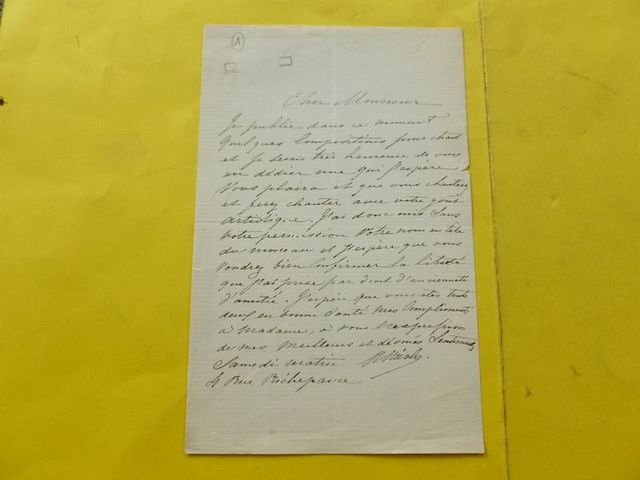 1
Cher Monsieur
Je publie dans ce moment
quelques Compositions pour chant
et je serais très heureuse de vous
en dédier une qui j'espère
vous plaira et que vous chanterez
et ferez chanter avec votre goût
artistique. J'ai donc mis sans
votre permission votre nom en tête
du morceau et j'espère que vous
voudrez bien confirmer la liberté
que j'ai prise par droit d'ancienneté
d'amitié. J'espère que vous êtes tous
deux en bonne santé mes Compliments
à Madame, à vous l'expression
de mes meilleurs et dévoués Sentiments
Samedi matin
4 Rue Richepance